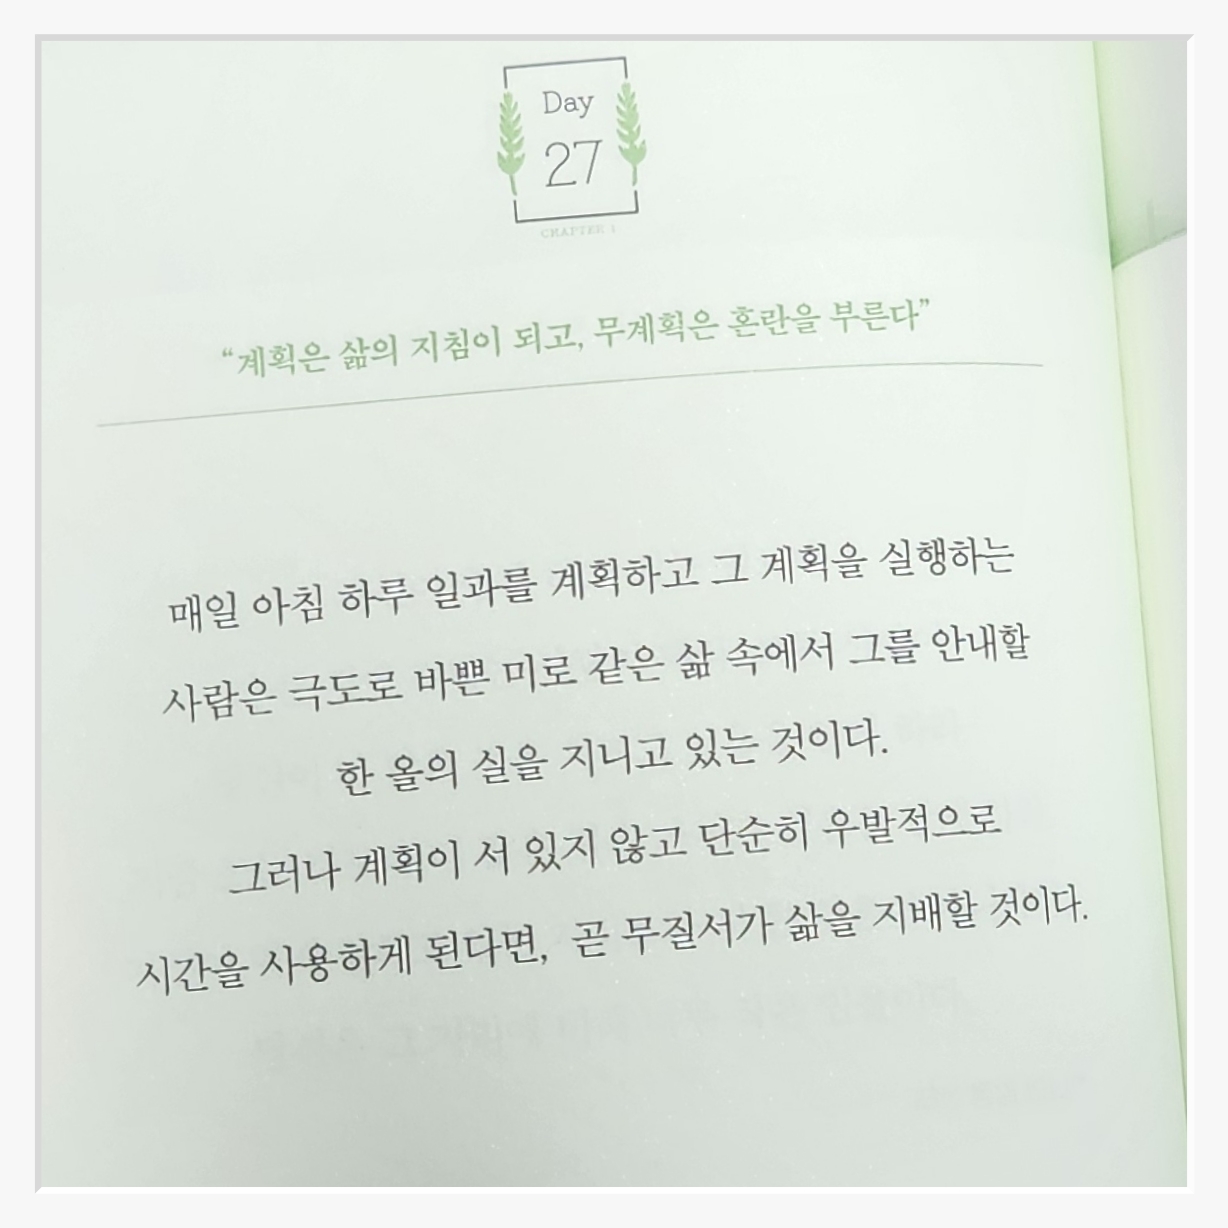 Day
27
CHAPTER 1
“계획은 삶의 지침이 되고, 무계획은 혼란을 부른다”
매일 아침 하루 일과를 계획하고 그 계획을 실행하는
사람은 극도로 바쁜 미로 같은 삶 속에서 그를 안내할
한 올의 실을 지니고 있는 것이다.
그러나 계획이 서 있지 않고 단순히 우발적으로
시간을 사용하게 된다면, 곧 무질서가 삶을 지배할 것이다.